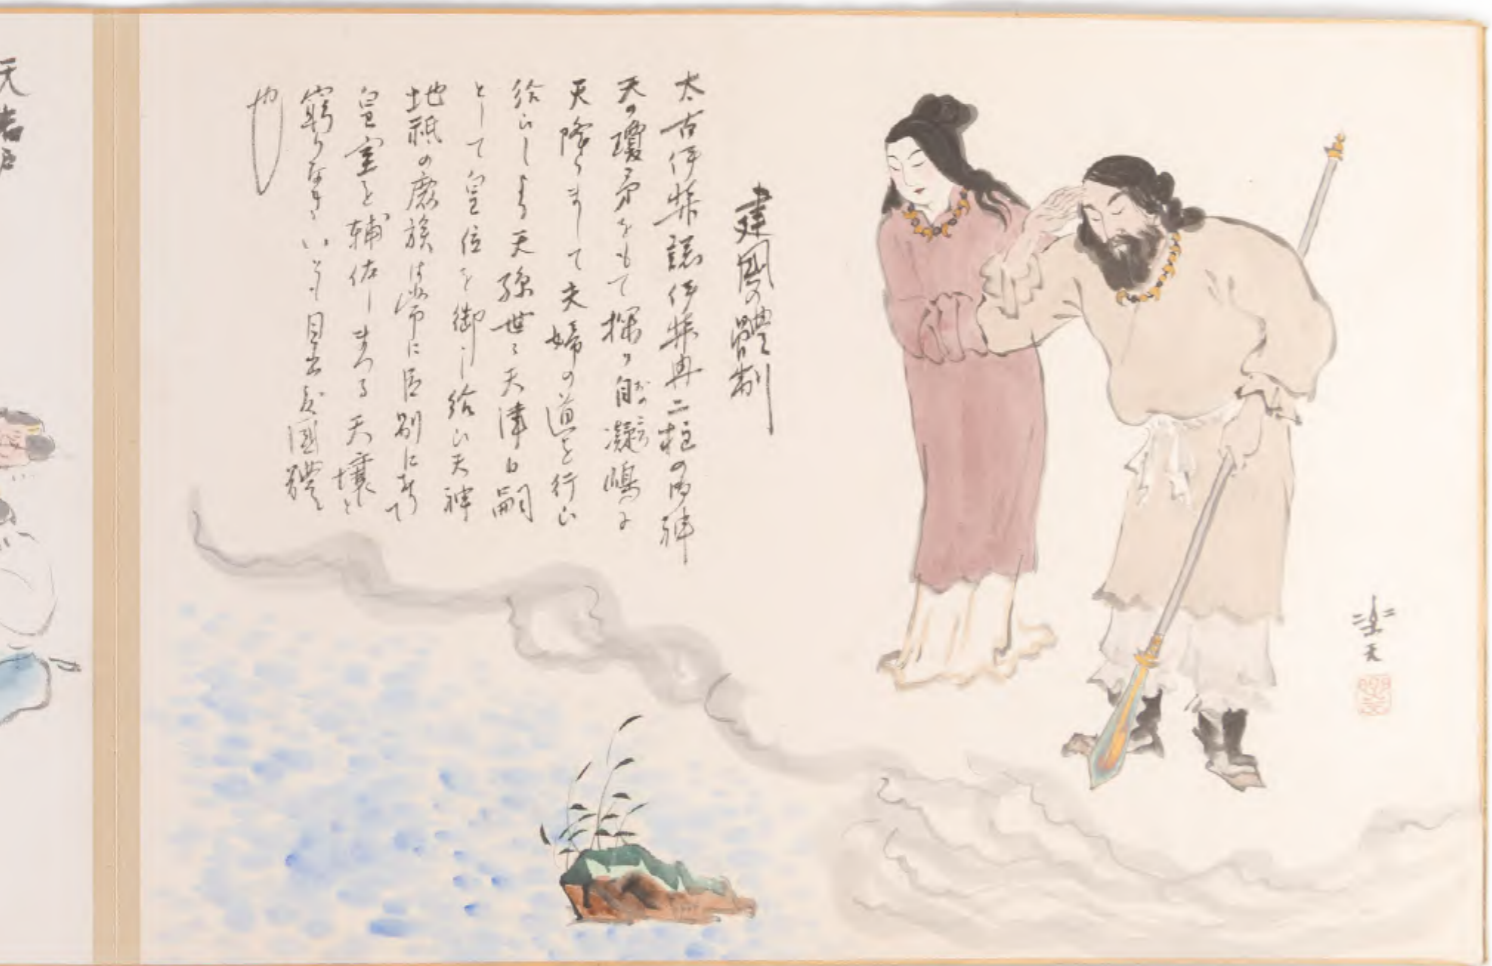 建国の體制
太古伊弉諾伊弉冉二柱の御神
天の瓊矛をもて探り自凝嶋に
天降りまして夫婦の道を行ひ
給ひしより天孫世々天津日嗣
として皇位を御し給ひ天神
地祇の裔族は
皇室を輔佐しまつる天壌と
窮りなき
國體
也
楽天
天岩戸